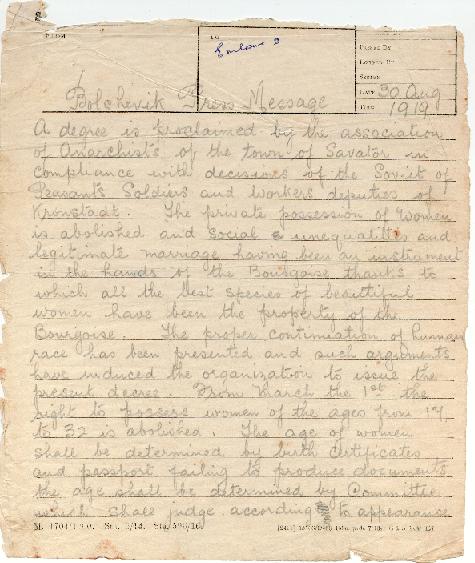 FROM
TO
Enclosure 2
PASSED BY
LOGGED BY
SYSTEM
DATE 30 Aug
TIME 1919
Bolchevik Press Message
A degree is proclaimed by the association
of Anarchists of the town of Savator in
compliance with decisions of the Soviet of
Peasants Soldiers and Workers deputies of
Kronstadt. The private possession of women
is abolished and social & inequalities and
legitimate marriage having been an instrument
in the hands of the Bourgoise thanks to
which all the best species of beautiful
women have been the property of the
Bourgoise. The proper continuation of human
race has been presented and such arguments
have induced the organization to issue the
present decree. From March the 1st the
right to possess women of the ages from 17
to 32 is abolished. The age of women
shall be determined by birth certificates
and passport failing to produce documents
the age shall be determined by Committee
which shall judge according to appearance